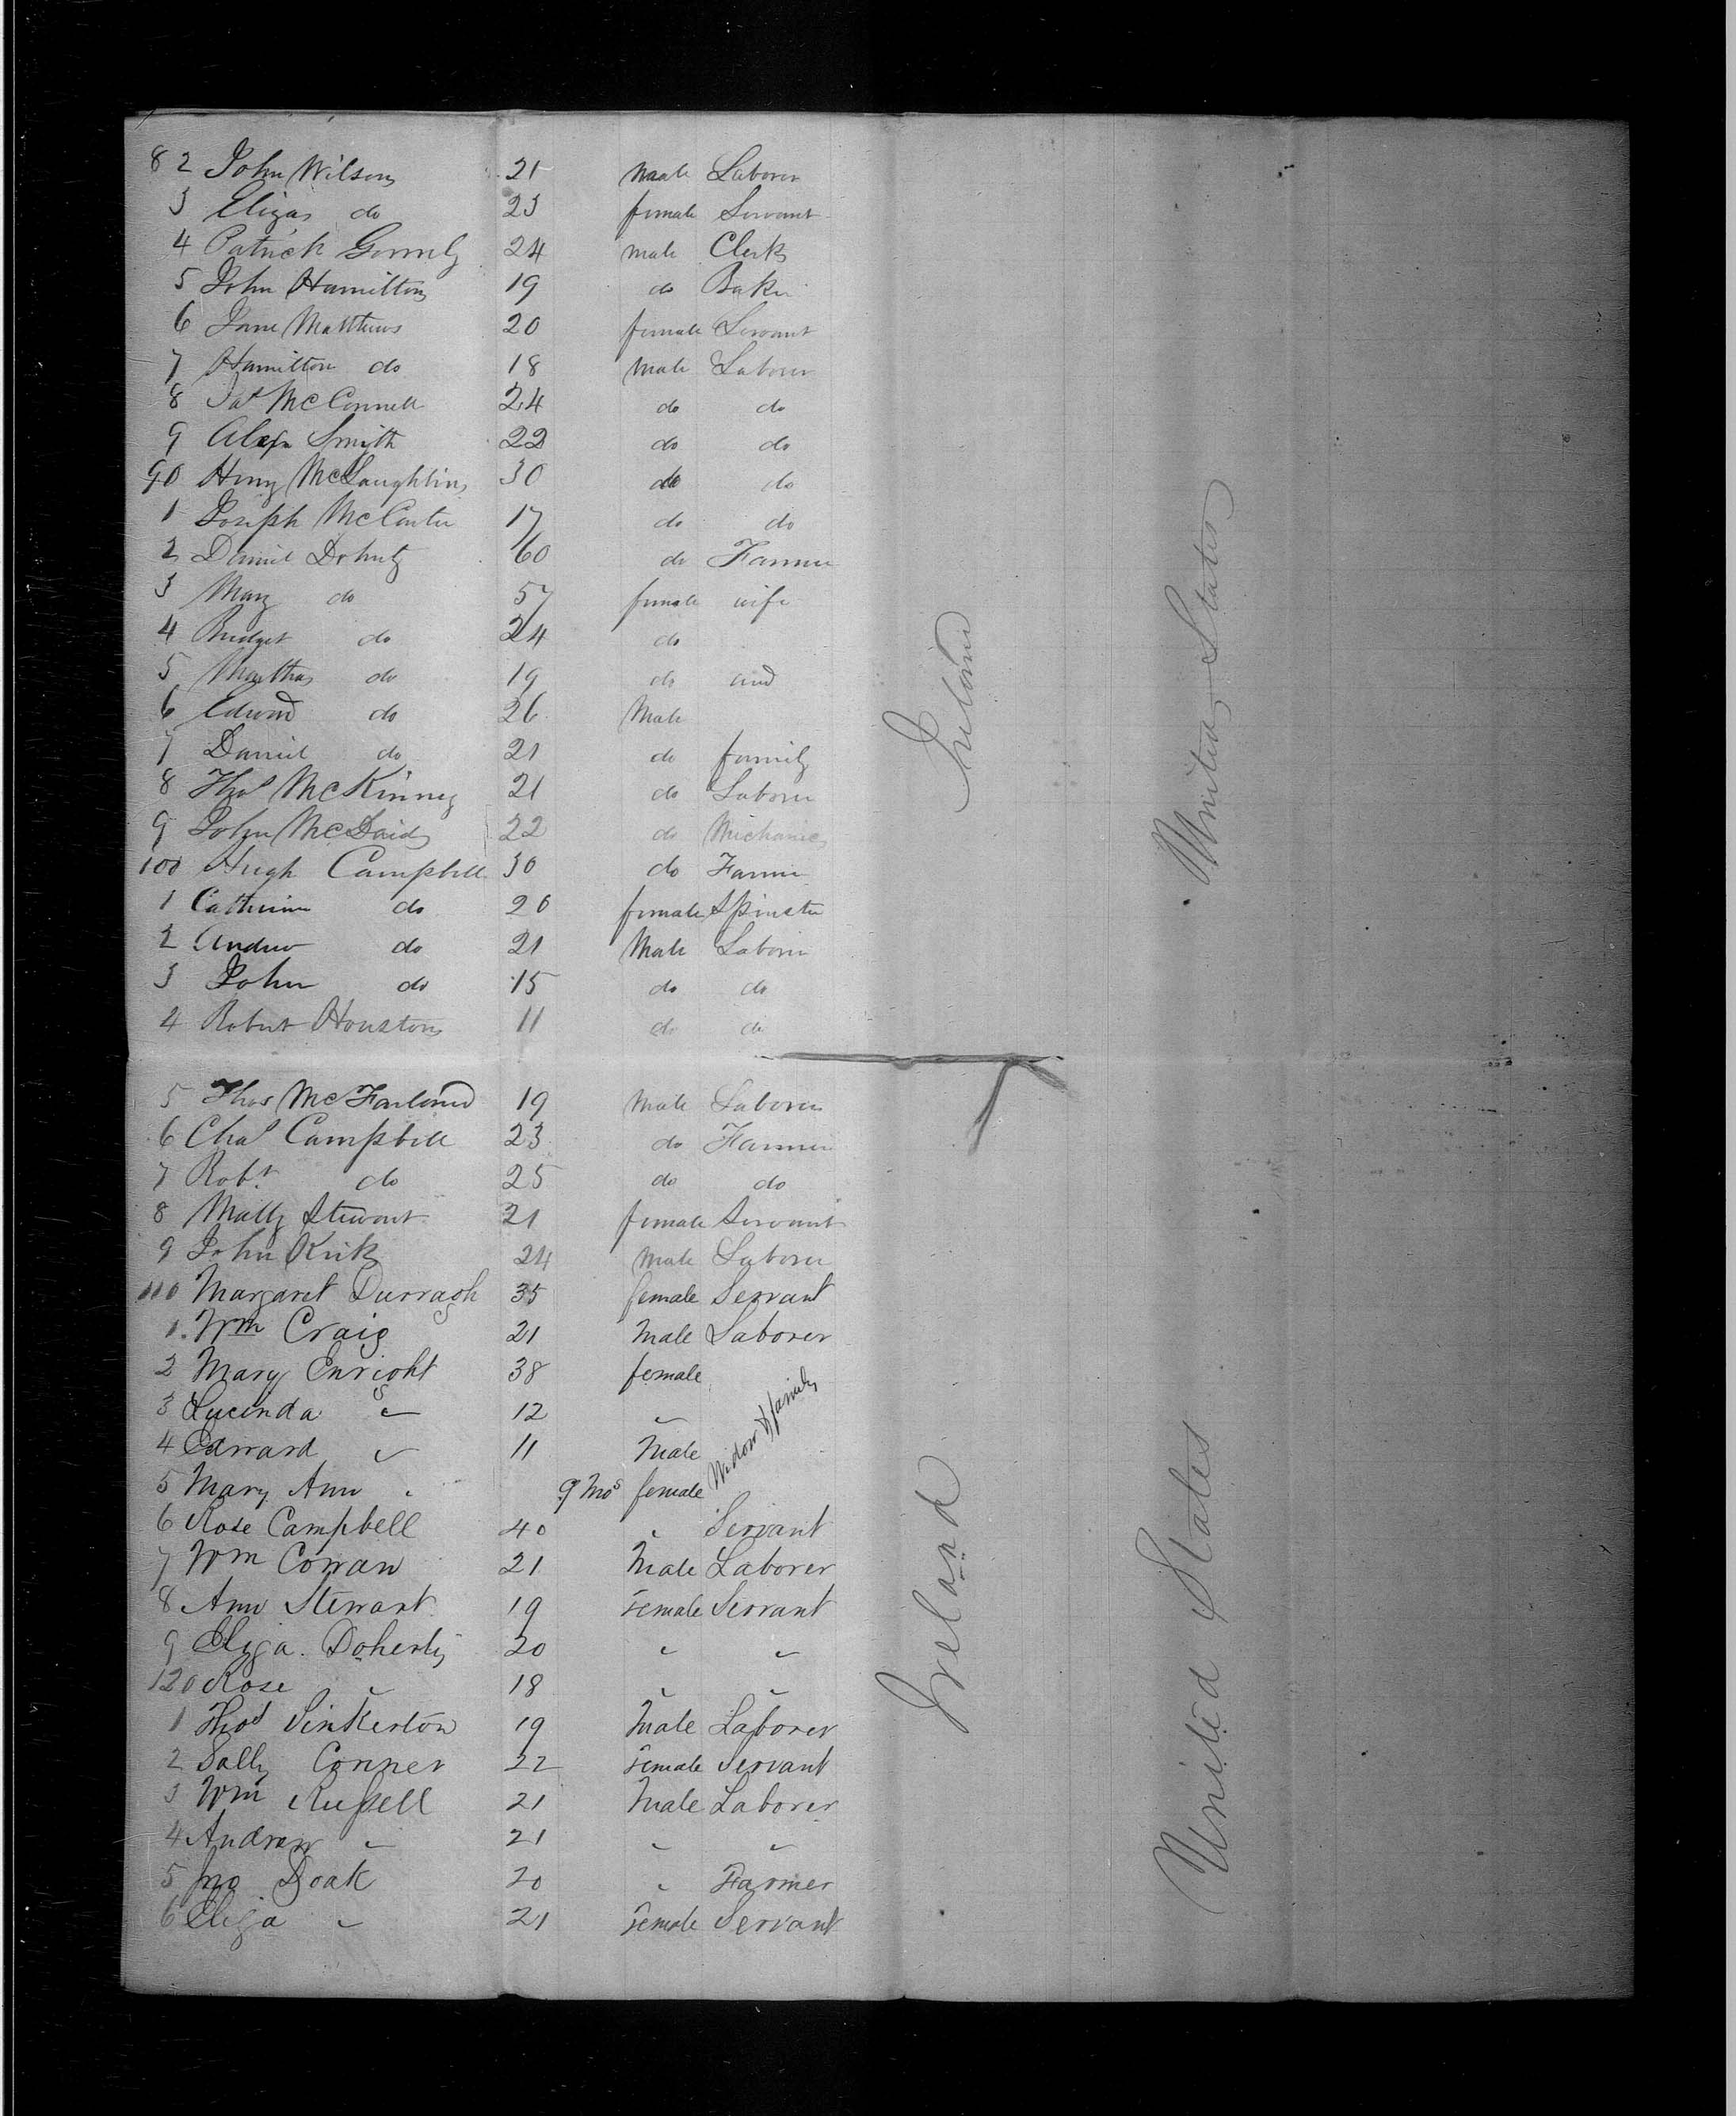 82 John Wilson 21 male Laborer
3 Eliza do 23 female Servant
4 Patrick Gormly 24 male Clerk
5 John Hamilton 19 do Baker
6 Jane Matthews 20 female Servant
7 Hamilton do 18 male Laborer
8 Jas McConnell 24 do do
9 Alexr Smyth 22 do do
90 Henry McLaughlin 30 do do
1 Joseph McCarter 17 do do
2 Daniel Dohuty 60 do Farmer
3 Mary do 57 female wife
4 Bridget do 24 do
5 Martha do 19 do and
6 Edward do 26 Male
7 Daniel do 21 do family
8 Thos McKinney 21 do Laborer
9 John McDaid 22 do Michanic
100 Hugh Campbell 30 do Farmer
1 Catherine do 20 female Spinster
2 Andrew do 21 Male Laborer
3 John do 15 do do
4 Robert Houston 11 do do
Ireland
United States
5 Thos McFarland 19 Male Laborer
6 Chas Campbell 23 do Farmer
7 Robt do 25 do do
8 Matty Stewart 21 female Servant
9 John Kirk 24 Male Laborer
110 Margaret Durragh 35 female Servant
1 Wm Craig 21 Male Laborer
2 Mary Enright 38 female
3 Lucinda " 12 "
4 Edward " 11 Male
5 Mary Ann " 9 Mos female
Widow & family
6 Rose Campbell 40 " Servant
7 Wm Cowan 21 Male Laborer
8 Ann Stewart 19 female Servant
9 Eliza Doherty 20 " "
120 Rose " 18 " "
1 Thos Sinkerton 19 Male Laborer
2 Sally Conner 22 female Servant
3 Wm Russell 21 Male Laborer
4 Andrew " 21 " "
5 Jno Doak 20 " Farmer
6 Eliza " 21 female Servant
Ireland
United States